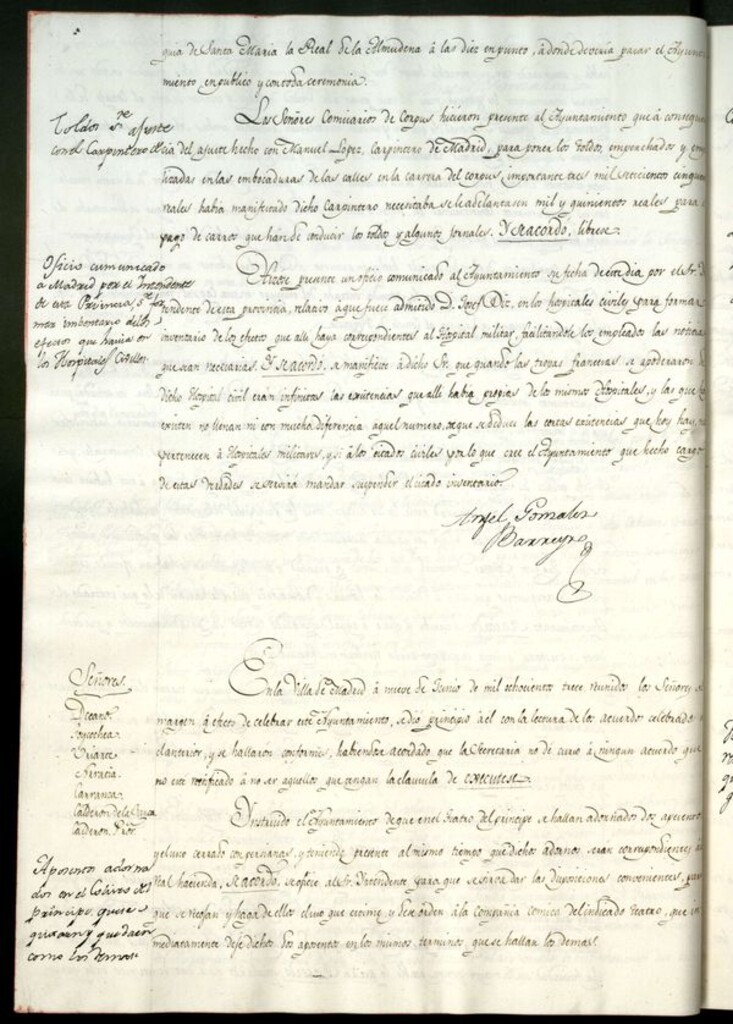 quia de Santa Maria la Real de la Almudena á las diez en punto, á donde devería pasar el Ayunta
miento en publico y con toda ceremonia.
Toldos sre. ajuste
con el Carpintero
Los Señores Comisarios de Corpus hicieron presente al Ayuntamiento que á consequen
cia del ajuste hecho con Manuel Lopez, Carpintero de Madrid, para poner los toldos, emponchados y
lizadas en las embocaduras de las calles en la carrera del corpus, importante tres mil setecientos cinquenta
reales había manifestado dicho Carpintero necesitaba se le adelantasen mil y quinientos reales para
pago de carros que han de conducir los toldos y algunos jornales. Y se acordó, librese.
Oficio cumunicado
a Madrid por el Intendente
de esta Provincia, sre. for
mar imbentario de los
efectos que havia en
los Hospitales Civiles
Hízose presente un oficio comunicado al Ayuntamiento su fecha de este dia por el Sr.
tendente de esta provincia, relativo á que fuese admitido D. Josef Diz, en los hospitales civiles para formar
inventario de los efectos que alli haya correspondientes al Hospital militar, facilitandole los empleados las noticias
que sean necesarias. Y se acordó, se manifieste á dicho Sr. que quando las tropas francesas se apoderaron de
dicho Hospital civil eran infinitas las existencias que alli habia propias de los mismos Hospitales, y las que
existen no llenan ni con mucha diferencia aquel numero, de que se deduce las cortas existencias que hoy hay, no
pertenecen á Hospitales militares, y si á los citados civiles por lo que cree el Ayuntamiento que hecho cargo
de estas verdades se servirá mandar suspender el citado inventario.
Angel Gonzalez
Barreyro
Señores.
Decano.
Goycoechea.
Uriarte.
Carranza.
Calderon de la Barca
Calderon, Prior.
En la Villa de Madrid á nueve de Junio de mil ochocientos trece, reunidos los Señores
margen á efecto de celebrar este Ayuntamiento, se dió principio á el con la lectura de los acuerdos celebrados
el anterior, y se hallaron conformes, habiendose acordado que la Secretaria no de curso á ningun acuerdo que
no esté ratificado á no ser aquellos que tengan la clausula de executese.
Aposentos adorna
dos en el Coliseo del
principe, que se
quiten y queden
como los demas
Instruido el Ayuntamiento de que en el teatro del principe se hallan adornados dos aposentos
y el uno cerrado con persianas, y teniendo presente al mismo tiempo que dichos adornos seran correspondientes á
real hacienda, se acordó, se oficie al Sr. Intendente para que se sirva dar las disposiciones convenientes, para
que se recojan y haga de ellos el uso que estime, y se de orden á la Compañia comica del indicado teatro, que in
mediatamente deje dichos dos aposentos en los mismos terminos que se hallan los demas.